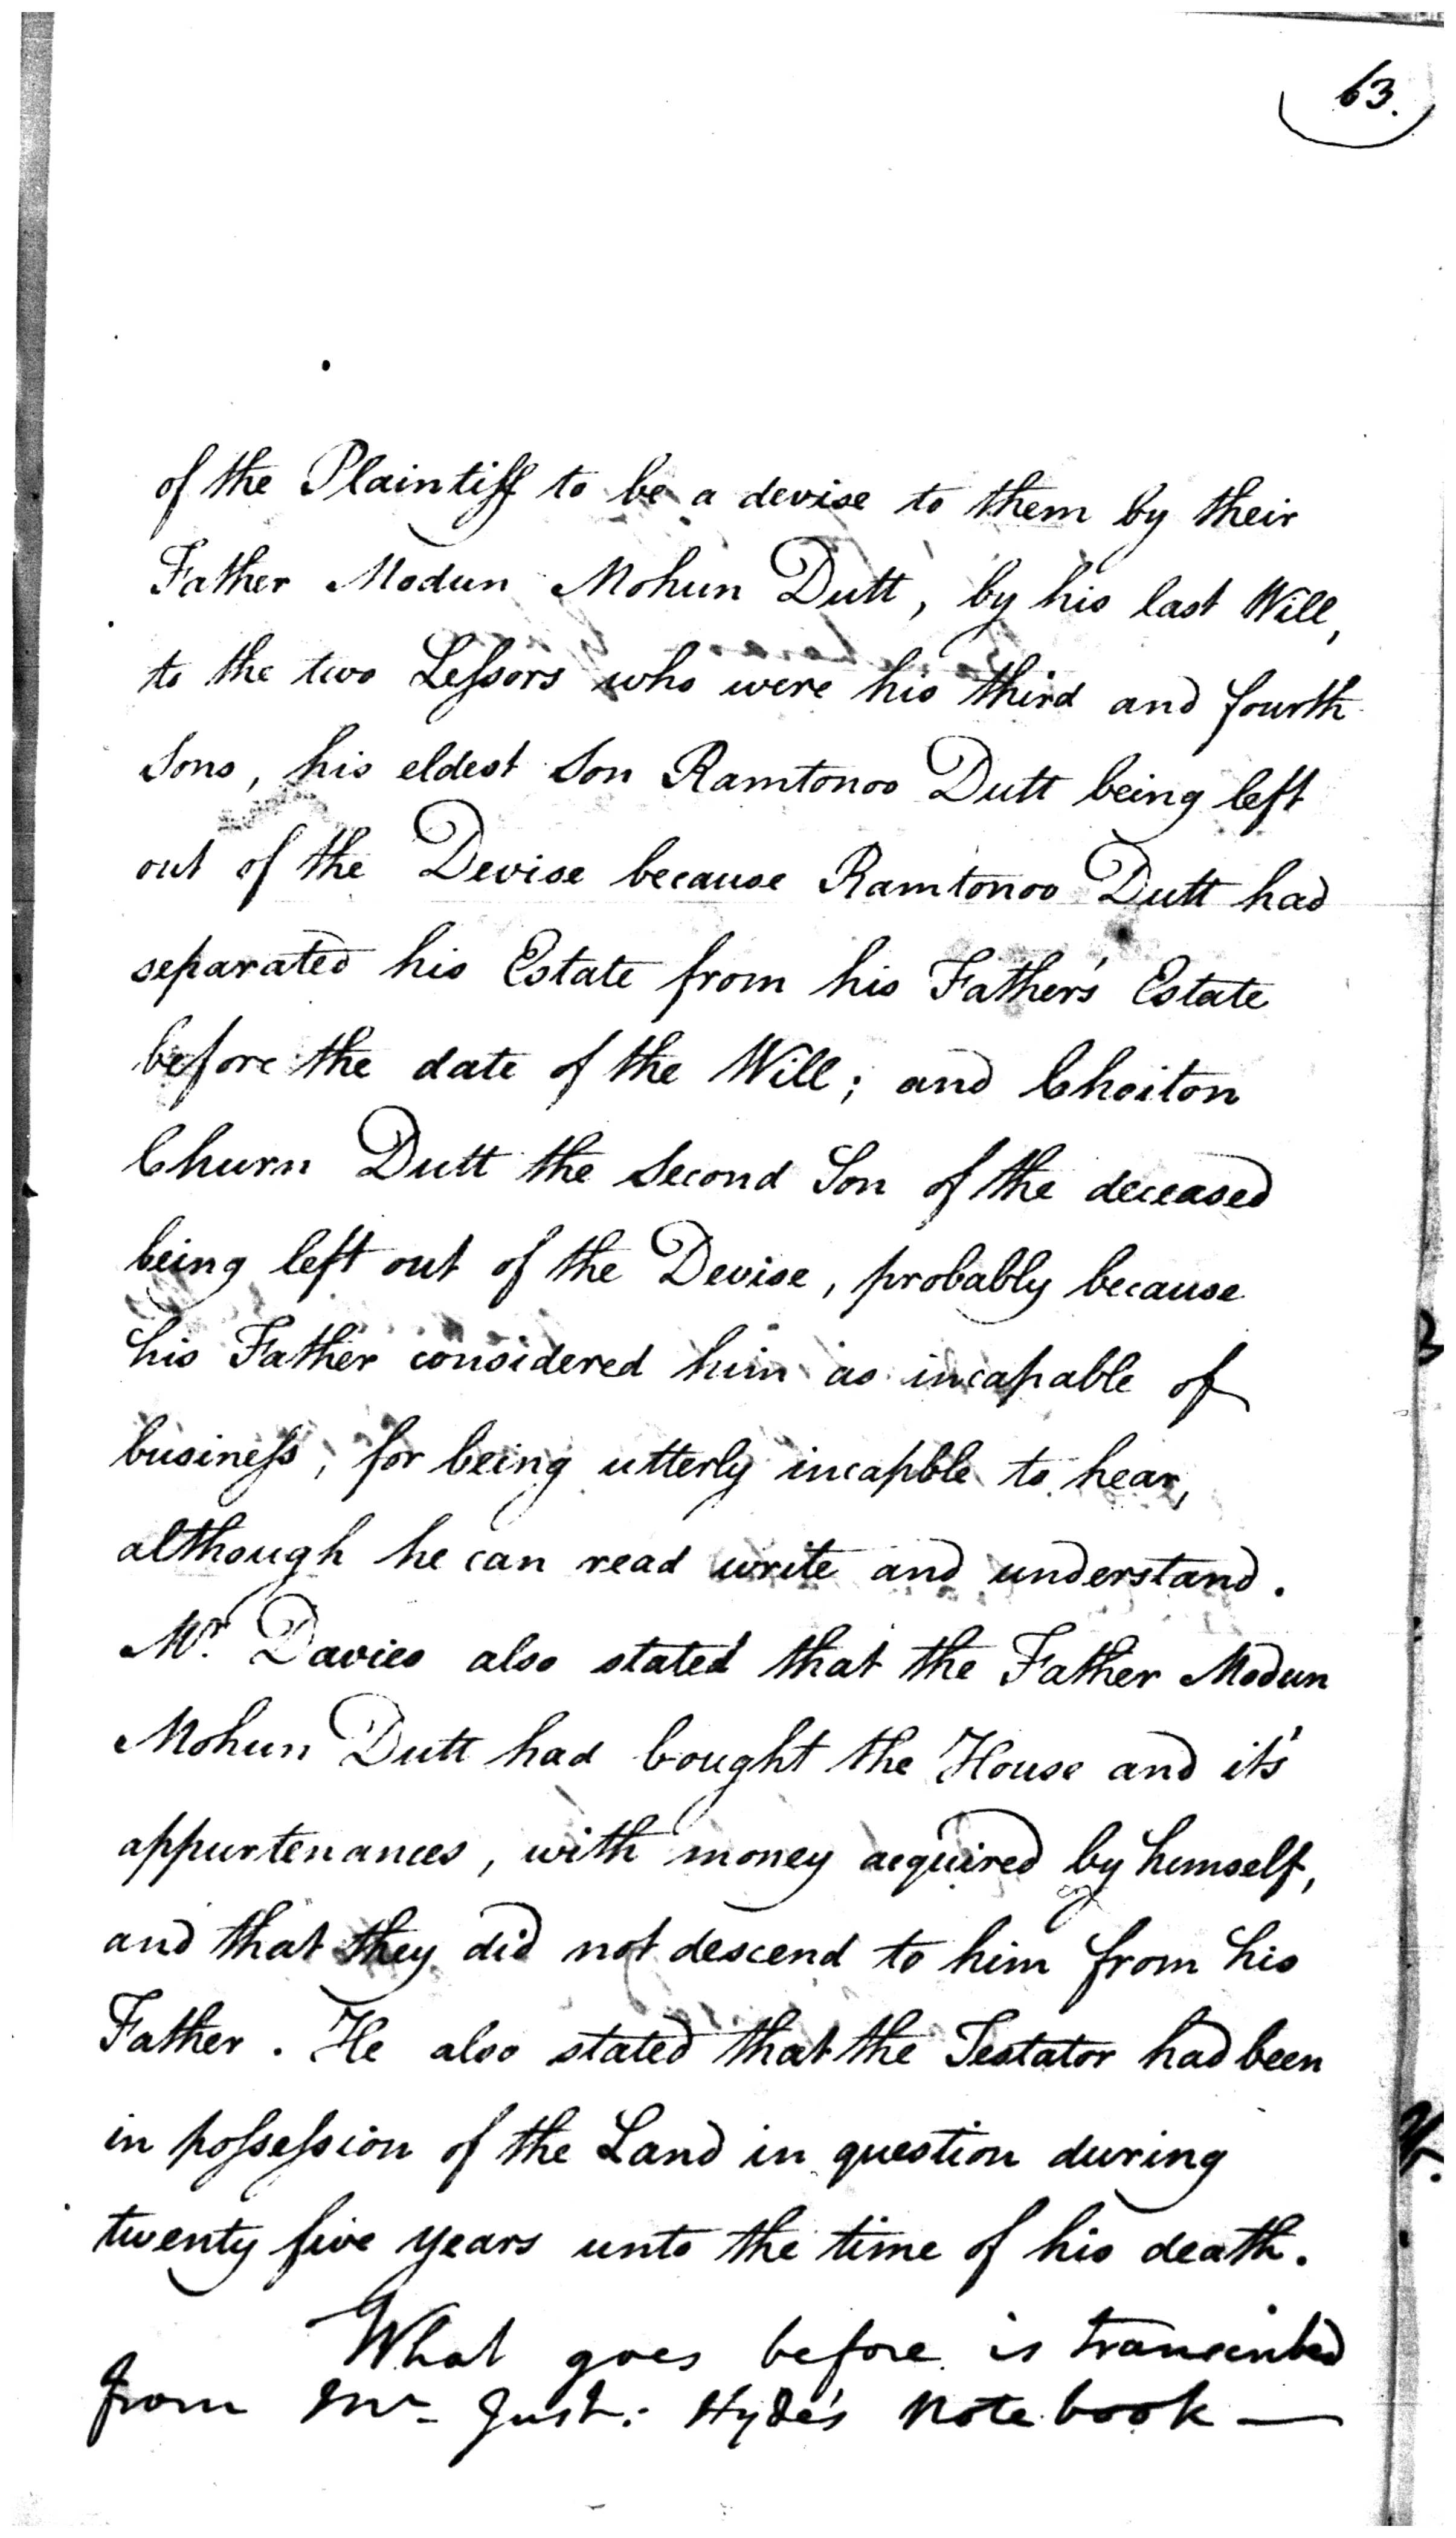 63.
of the Plaintiff to be a devise to them by their
Father Modun Mohun Dutt, by his last Will,
to the two Leſsors who were his third and fourth
Sons, his eldest Son Ramtonoo Dutt being left
out of the Devise because Ramtonoo Dutt had
separated his Estate from his Father's Estate
before the date of the Will; and Choiton
Churn Dutt the Second Son of the deceased
being left out of the Devise, probably because
his Father considered him as incapable of
busineſs, for being utterly incapble to hear,
although he can read write and understand.
Mr. Davies also stated that the Father Modun
Mohun Dutt had bought the House and it's
appurtenances, with money acquired by himself,
and that they did not descend to him from his
Father. He also stated that the Testator had been
in poſseſsion of the Land in question during
twenty five years unto the time of his death.
What goes before is transcribed
from Mr. Just: Hyde's Note book —